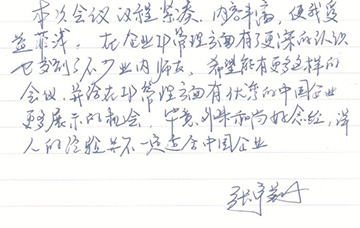 本次会议议程紧凑、内容丰富,使我受
益菲浅。在企业IP管理方面有了更深的认识
也学到了不少业内师友。希望能有更多这样的
会议,并给在IP管理方面有优秀的中国企业
更多展示的机会,毕竟外来和尚好念经,洋
人的经验并不一定适合中国企业